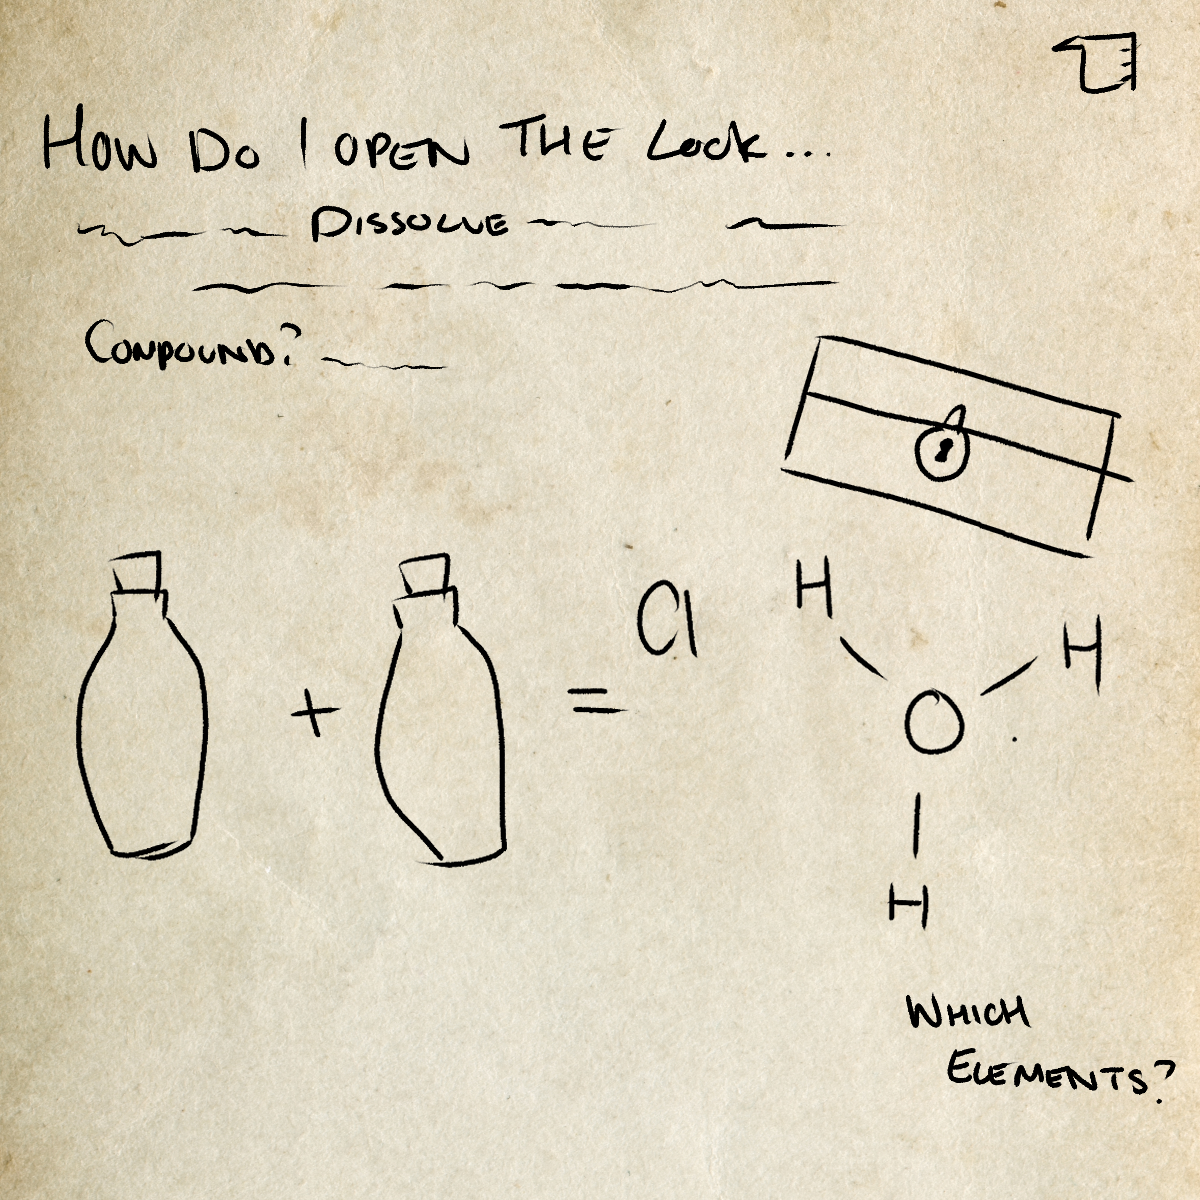 How Do I OPEN THE Lock...
DISSOLVE
COMPOUND?
+ = Cl
H
H
O
H
WHICH
ELEMENTS?